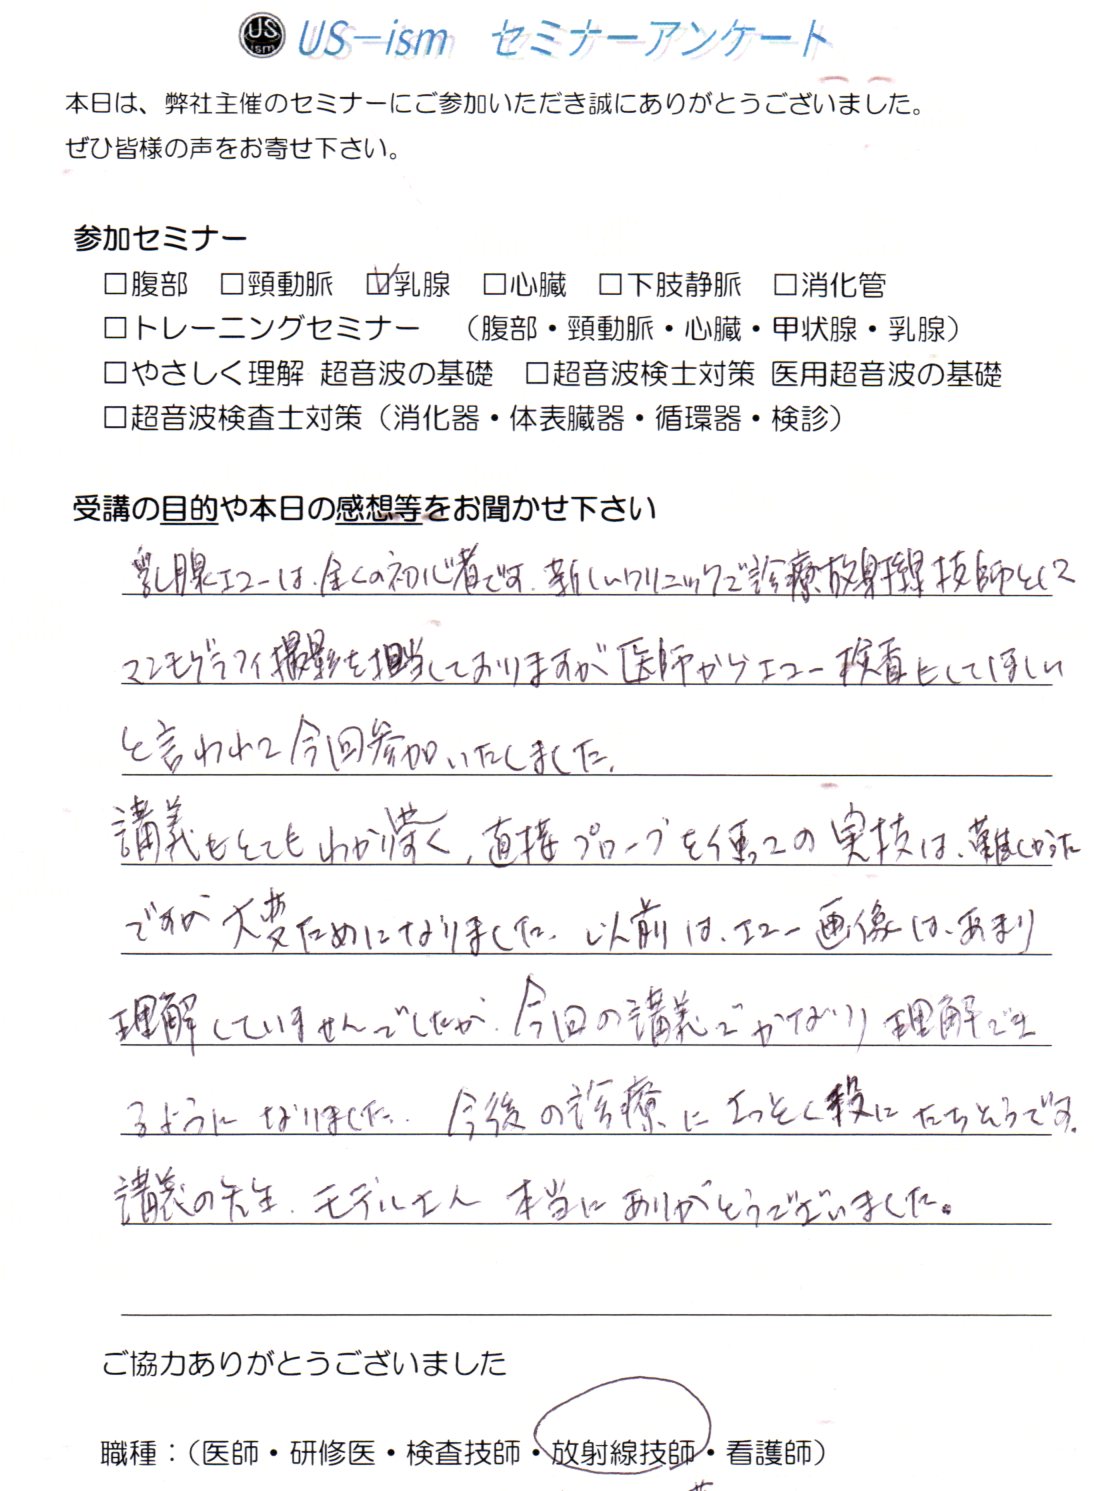 US ism US-ism セミナーアンケート
本日は、弊社主催のセミナーにご参加いただき誠にありがとうございました。
ぜひ皆様の声をお寄せ下さい。
参加セミナー
□腹部 □頸動脈 ☑乳腺 □心臓 □下肢静脈 □消化管
□トレーニングセミナー （腹部・頸動脈・心臓・甲状腺・乳腺）
□やさしく理解 超音波の基礎 □超音波検士対策 医用超音波の基礎
□超音波検査士対策（消化器・体表臓器・循環器・検診）
受講の目的や本日の感想等をお聞かせ下さい
乳腺エコーは、全くの初心者です。新しいクリニックで診療放射線技師として
マンモグラフィ撮影を担当しておりますが医師からエコー検査もしてほしい
と言われて今回参加いたしました。
講義もとてもわかり易く、直接プローブを使っての実技は、難しかった
ですが大変ためになりました。以前は、エコー画像は、あまり
理解していませんでしたが、今回の講義でかなり理解でき
るようになりました。今後の診療にさっそく役にたちそうです。
講義の先生、モデルさん 本当にありがとうございました。
ご協力ありがとうございました
職種：（医師・研修医・検査技師・放射線技師・看護師）